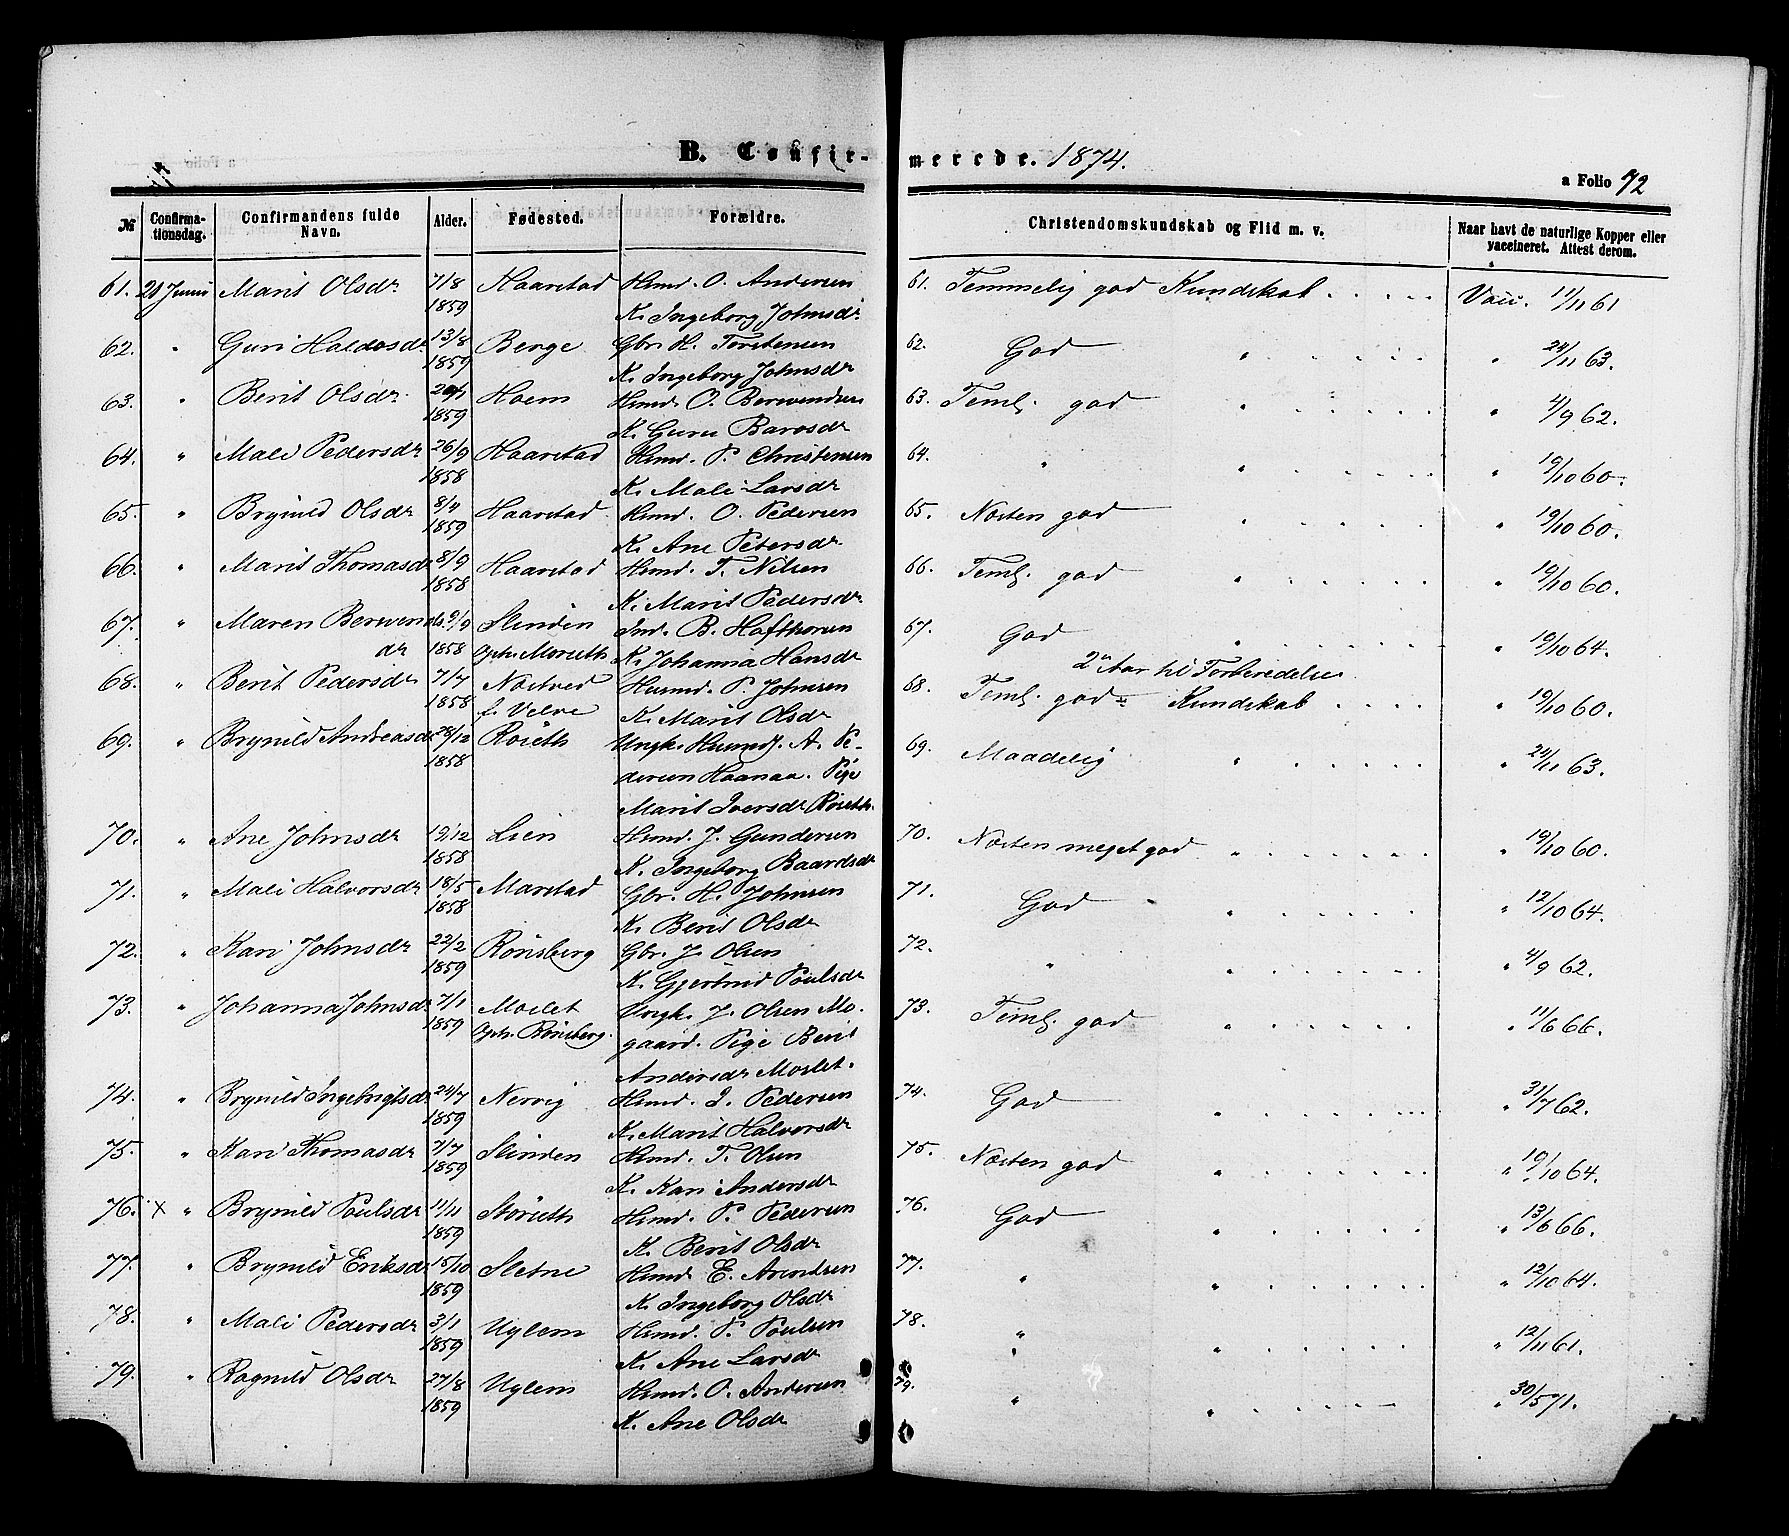 B. Confirmerede. 1874.
a Folio 72
№ Confirmationsdag. Confirmandens fulde Navn. Alder. Fødested. Forældre. Christendomskundskab og Flid m. v. Naar havt de naturlige Kopper eller vaccineret. Attest derom.
61. 21 Juni Marit Olsdr 7/8 Haarstad Husmd. O. Andersen 61. Temmelig god Kundskab . . . . . Vacc. 11/11 61
1859 K. Ingeborg Johnsdr
62. " Guri Haldosdr 13/8 Berge Gbr. H. Torstensen 62. God " . . . . . " 24/11 63.
1859 K. Ingeborg Johnsdr
63. " Berit Olsdr. Hoem Husmd. O. Berwendsen 63. Teml. god " . . . . . " 4/9 62.
1859 K. Guru Barosdr
64. " Mali Pedersdr 26/9 Haarstad Husmd. P. Christensen 64. " " . . . . . " 19/10 60.
1858 K. Mali Larsdr
65. " Brynild Olsdr 8/4 Haarstad Husmd. O. Pedersen 65. Næsten god " . . . . . " 19/10 60.
1859 K. Ane Petersdr.
66. " Marit Thomasdr 8/9 Haarstad Husmd. T. Nilsen 66. Teml. god " . . . . . " 19/10 60.
1858 K. Marit Pedersdr
67. " Maren Berwends 9/9 Slinden Ind. B. Hafthorsen 67. God " . . . . . " 19/10 64.
dr 1858 Oph. Morseth K. Johanna Hansdr 2 Aar til Forberedelse
68. " Berit Pedersdr 7/7 Nostved Husmd. P. Johnsen 68. Teml. god Kundskab . . . . " 19/10 60.
1858 f. Velve K. Marit Olsdr
69. " Brynild Andreasdr 28/12 Røseth Ungk. Husmd. A. Pe- 69. Maadelig " . . . . . " 24/11 63.
1858 dersen Haanaa. Pige
Marit Iversdr Røseth.
70. " Ane Johnsdr 19/12 Lien Husmd. J. Gundersen 70. Næsten meget god " . . . . . " 19/10 60.
1858 K. Ingeborg Baardsdr
71. " Mali Halvorsdr 18/5 Marstad Gbr. H. Johnsen 71. God " . . . . . " 12/10 64.
1858 K. Berit Olsdr
72. " Kari Johnsdr 22/2 Rønsberg Gbr. J. Olsen 72. " " . . . . . " 4/9 62.
1859 K. Gjertrud Poulsdr
73. " Johanna Johnsdr 7/1 Moslet Ungk. J. Olsen Mo- 73. Teml. god " . . . . . " 11/6 66.
1859 Oph. Rønsberg. gaard. Pige Berit
Andersdr Moslet.
74. " Brynild Ingebrigtsdr 24/7 Nervig Husmd. I. Pedersen 74. God " . . . . . " 31/7 62.
1859 K. Marit Halvorsdr
75. " Kari Thomasdr 7/7 Slinden Husmd. T. Olsen 75. Næsten god " . . . . . " 19/10 64.
1859 K. Kari Andersdr
76. x " Brynild Poulsdr 11/4 Størseth Husmd. P. Pedersen 76. God " . . . . . " 13/6 66.
1859 K. Berit Olsdr
77. " Brynild Eriksdr 15/10 Sletne Husmd E. Arentsen 77. " " . . . . . " 12/10 64.
1859 K. Ingeborg Olsdr
78. " Mali Pedersdr 3/1 Uglem Husmd. P. Poulsen 78. " " . . . . . " 12/11 61.
1859 K. Ane Larsdr
79. " Ragnild Olsdr 27/8 Uglem Husmd. O. Andersen 79. " " . . . . . " 30/5 71.
1859 K. Ane Olsdr